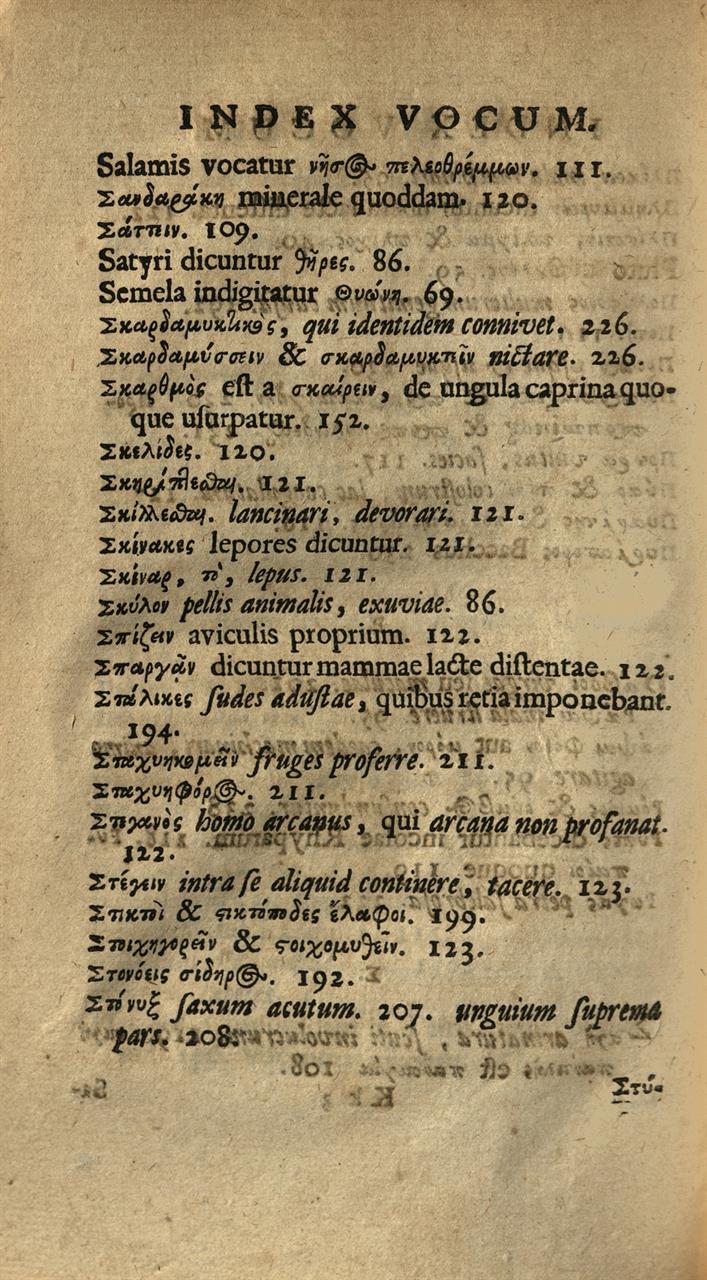 INDEX VOCUM.
Salamis vocatur νῆσος πελεοθρέμμων. 111.
Σανδαράκη minerale quoddam. 120.
Σάττειν. 109.
Satyri dicuntur θῆρες. 86.
Semela indigitatur Θυώνη. 69.
Σκαρδαμυκτικὸς, qui identidem connivet. 226.
Σκαρδαμύσσειν & σκαρδαμυκτεῖν nictare. 226.
Σκαρθμὸς est a σκαίρειν, de ungula caprina quo-
que uſurpatur. 152.
Σκελίδες. 120.
Σκηρίπτεσθαι. 121.
Σκίλλεσθαι. lancinari, devorari. 121.
Σκίνακες lepores dicuntur. 121.
Σκίναρ, τὸ, lepus. 121.
Σκύλον pellis animalis, exuviae. 86.
Σπίζειν aviculis proprium. 122.
Σπαργᾶν dicuntur mammae lacte diſtentae. 122.
Στάλικες ſudes aduſtae, quibus retia imponebant.
194.
Σταχυηκομεῖν fruges proferre. 211.
Σταχυηφόρος. 211.
Στεγανὸς homo arcanus, qui arcana non profanat.
122.
Στέγειν intra ſe aliquid continere, tacere. 123.
Στικτοὶ & στικτόποδες ἔλαφοι. 199.
Στοιχηγορεῖν & στοιχομυθεῖν. 123.
Στονόεις σίδηρος. 192.
Στόνυξ ſaxum acutum. 207. unguium ſuprema
pars. 208.
Στύ-